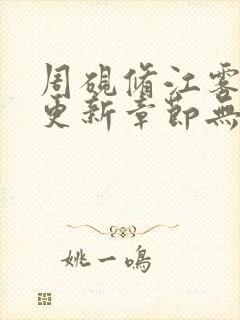 周砚脩江雾
更新章節無
姚一鳴